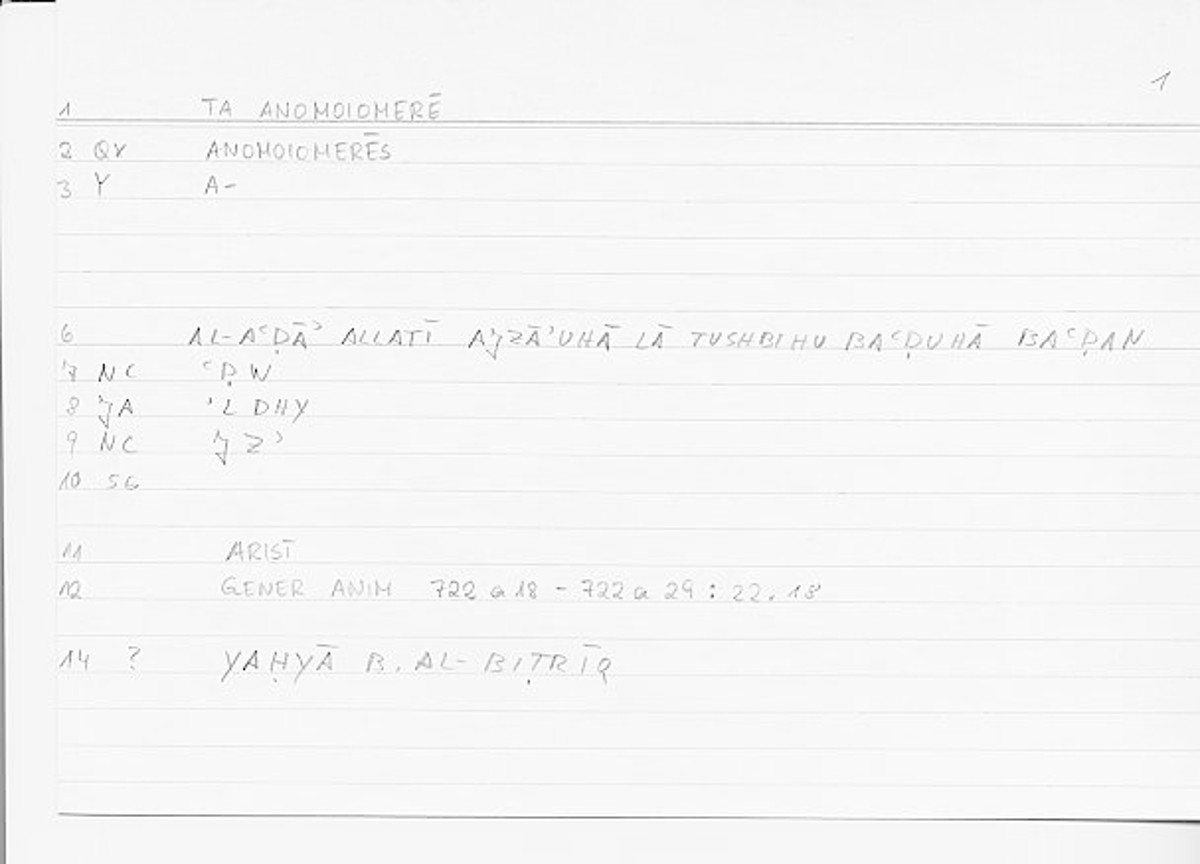 1
1 TA ANOMOIOMERĒ
2 QV ANOMOIOMERĒS
3 Y A-
6 AL-AʿḌĀʾ ALLATĪ AJZĀʾUHĀ LĀ TUSHBIHU BAʿḌUHĀ BAʿḌAN
7 NC ʿḌW
8 JA ʾLDHY
9 NC JZʾ
10 SG
11 ARIST
12 GENER ANIM 722 a 18 - 722 a 29 : 22.18
14 ? YAḤYĀ B. AL-BIṬRĪQ